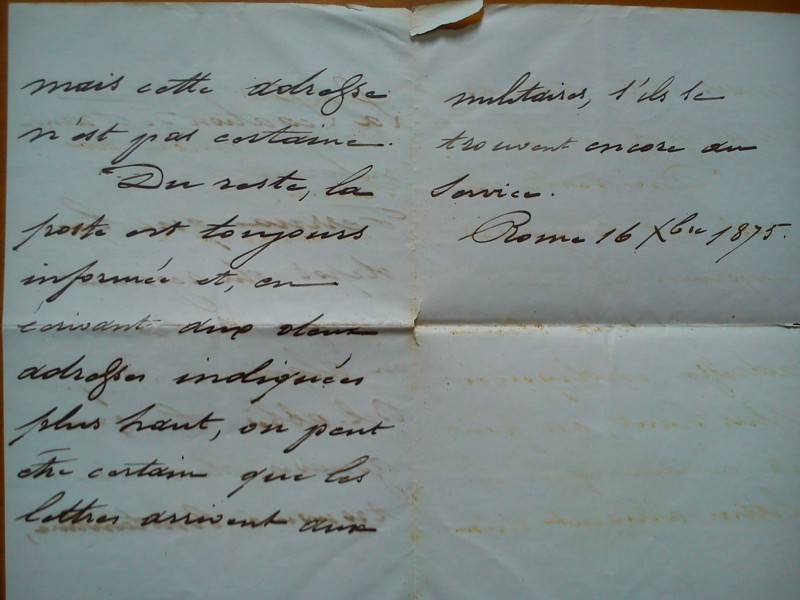 mais cette adresse
n'est pas certaine.
Du reste, la
poste est toujours
informée et, en
écrivant aux deux
adresses indiquées
plus haut, on peut
être certain que les
lettres arrivent aux
militaires, s'ils se
trouvent encore au
service.
Rome 16 Xbre 1875.